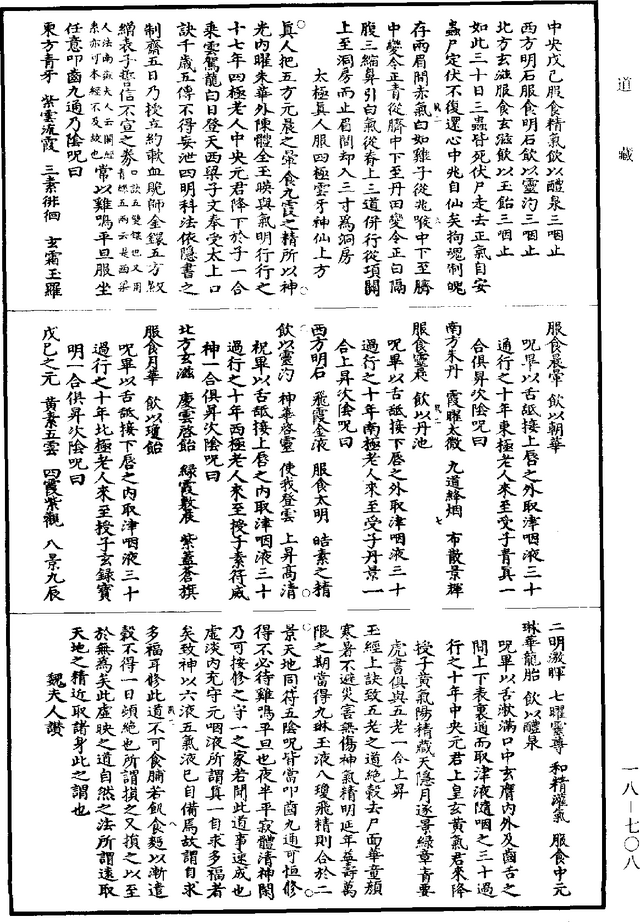 道藏
中央戊己服食精氣飲以醴泉三咽止
西方明石服食明石飲以靈沟三咽止
北方玄滋服食玄滋飲以玉飴三咽止
如此三十日三蟲皆死伏尸走去正氣自安
蟲尸定伏不復還心中兆自仙矣拘魂制魄
存兩眉間赤氣白如雞子從兆喉中下至臍
中變令正青從臍中下至丹田變令正白隔
腹三緬鼻引白氣從脊上三道併行從項開
上至洞房而止眉間却入三寸為洞房
太極真人服四極雲牙神仙上方
真人把五方元晨之暈食九霞之精所以神
光內曜朱華外陳體全玉暎與氣明行行之
十七年四極老人中央元君降下於子一合
乘雲駕龍白日登天西梁子文奉受太上口
訣千歲五傳不得妄泄四明科法依隱書之
制齋五日乃授立約歃血脆師金鐶五方紋
繒表子誓信不宣之券
常以雞鳴平旦服坐
任意叩齒九通乃陰呪曰
東方青牙　紫雲流霞　三素徘徊　玄霜玉羅
服食晨暈　飲以朝華
呪畢以舌舐接上唇之外取津咽液三十
通行之十年東極老人來至受子青真一
合俱昇次陰呪曰
南方朱丹　霞暉太微　九道絳烟　布散景輝
服食靈蕤　飲以丹池
呪畢以舌舐接下唇之外取津咽液三十
過行之十年南極老人來至受子丹景一
合上昇次陰呪曰
西方明石　飛霞金液　服食太明　皓素之精
飲以靈沟　神華啓靈　使我登雲　上昇高清
祝畢以舌舐接上唇之內取津咽液三十
過行之十年西極老人來至授子素符威
神一合俱昇次陰呪曰
北方玄滋　慶雲啓飴　綠霞敷展　紫蓋蒼旗
服食月華　飲以瓊飴
呪畢以舌舐接下唇之內取津咽液三十
過行之十年北極老人來至授子玄錄寶
明一合俱昇次陰呪曰
戊己之元　黃素五雲　四霞紫觀　八景九辰
二明激暉　七曜靈尊　和精灌氣　服食中元
琳華龍胎　飲以醴泉
呪畢以舌漱滿口中玄膺內外及齒舌之
間上下表裏通而取津液隨咽之三十過
行之十年中央元君上皇玄黃氣君來降
授子黃氣陽精藏天隱月逐景綠章青要
虎書俱與五老一合上昇
玉經上訣致五老之道絶穀去尸面華童顏
寒暑不避災害無傷神氣精明延年益壽萬
限之期當得九琳玉液八瓊飛精則合於二
景天地同符五陰呪皆當叩齒九通可恒修
得不必待雞鳴平旦也夜半平寂體清神閑
乃可按修之守一之家若聞此道事速成也
虛淡內充守元咽液所謂真一自求多福者
矣致神以六液五氣液已自備焉故謂自求
多福耳修此道不可食脯若飢食麪以漸遣
穀不得一日頓絶也所謂損之又損之以至
於無為矣此虛映之道自然之法所謂遠取
天地之精近取諸身此之謂也
魏夫人讚
一八—七〇八